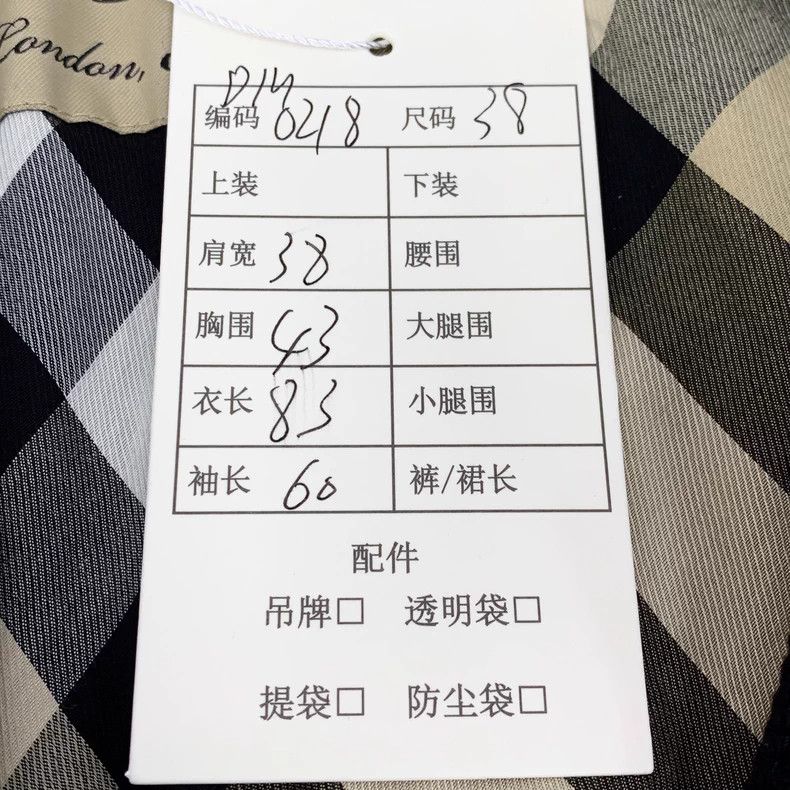 London,
编码 0218 尺码 38
上装 下装
肩宽 38 腰围
胸围 43 大腿围
衣长 83 小腿围
袖长 60 裤/裙长
配件
吊牌□ 透明袋□
提袋□ 防尘袋□